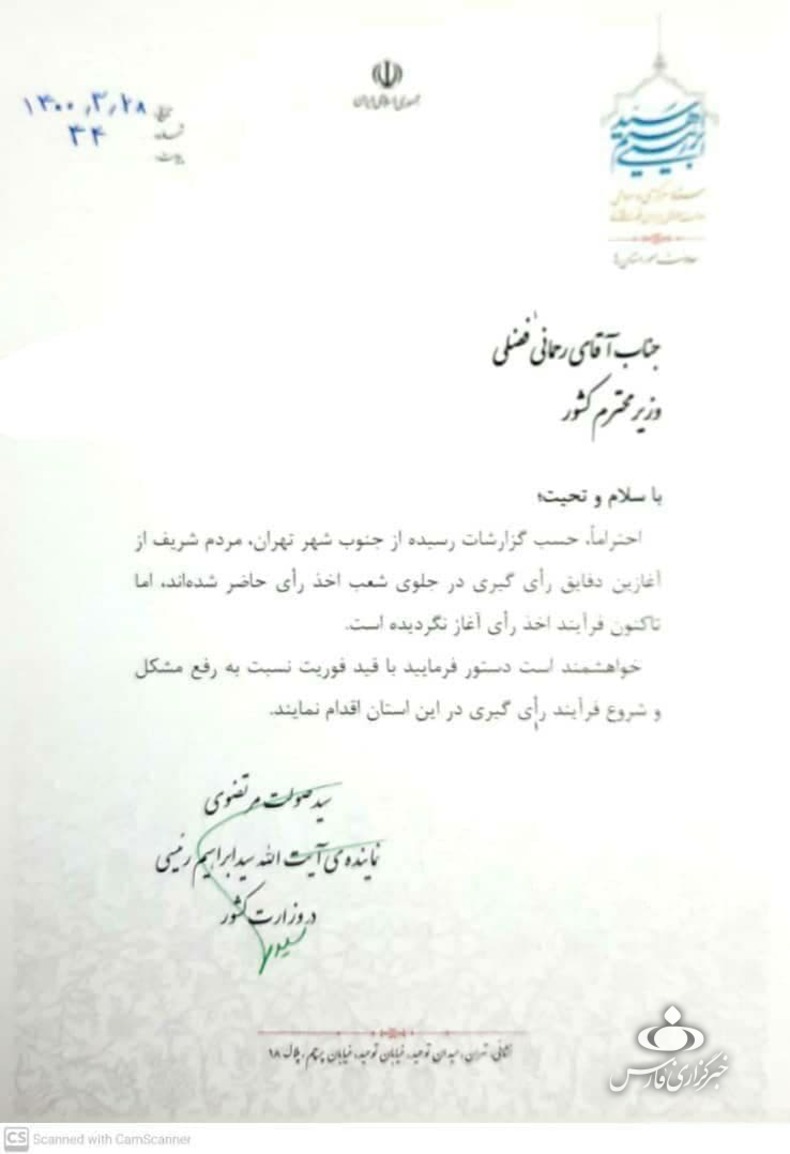 جمهوری اسلامی ایران
۱۴۰۰,۳,۲۸
۴۴
سید
ابراهیم
رئیسی
جناب آقای رحمانی فضلی
وزیر محترم کشور
با سلام و تحیت؛
احتراماً، حسب گزارشات رسیده از جنوب شهر تهران، مردم شریف از
آغازین دقایق رأی گیری در جلوی شعب اخذ رأی حاضر شده‌اند، اما
تاکنون فرآیند اخذ رأی آغاز نگردیده است.
خواهشمند است دستور فرمایید با قید فوریت نسبت به رفع مشکل
و شروع فرآیند رأی گیری در این استان اقدام نمایند.
سید صولت مرتضوی
نماینده‌ی آیت الله سید ابراهیم رئیسی
در وزارت کشور
نشانی: تهران، میدان توحید، خیابان توحید، خیابان پرچم، پلاک ۱۸
خبرگزاری فارس
CS Scanned with CamScanner